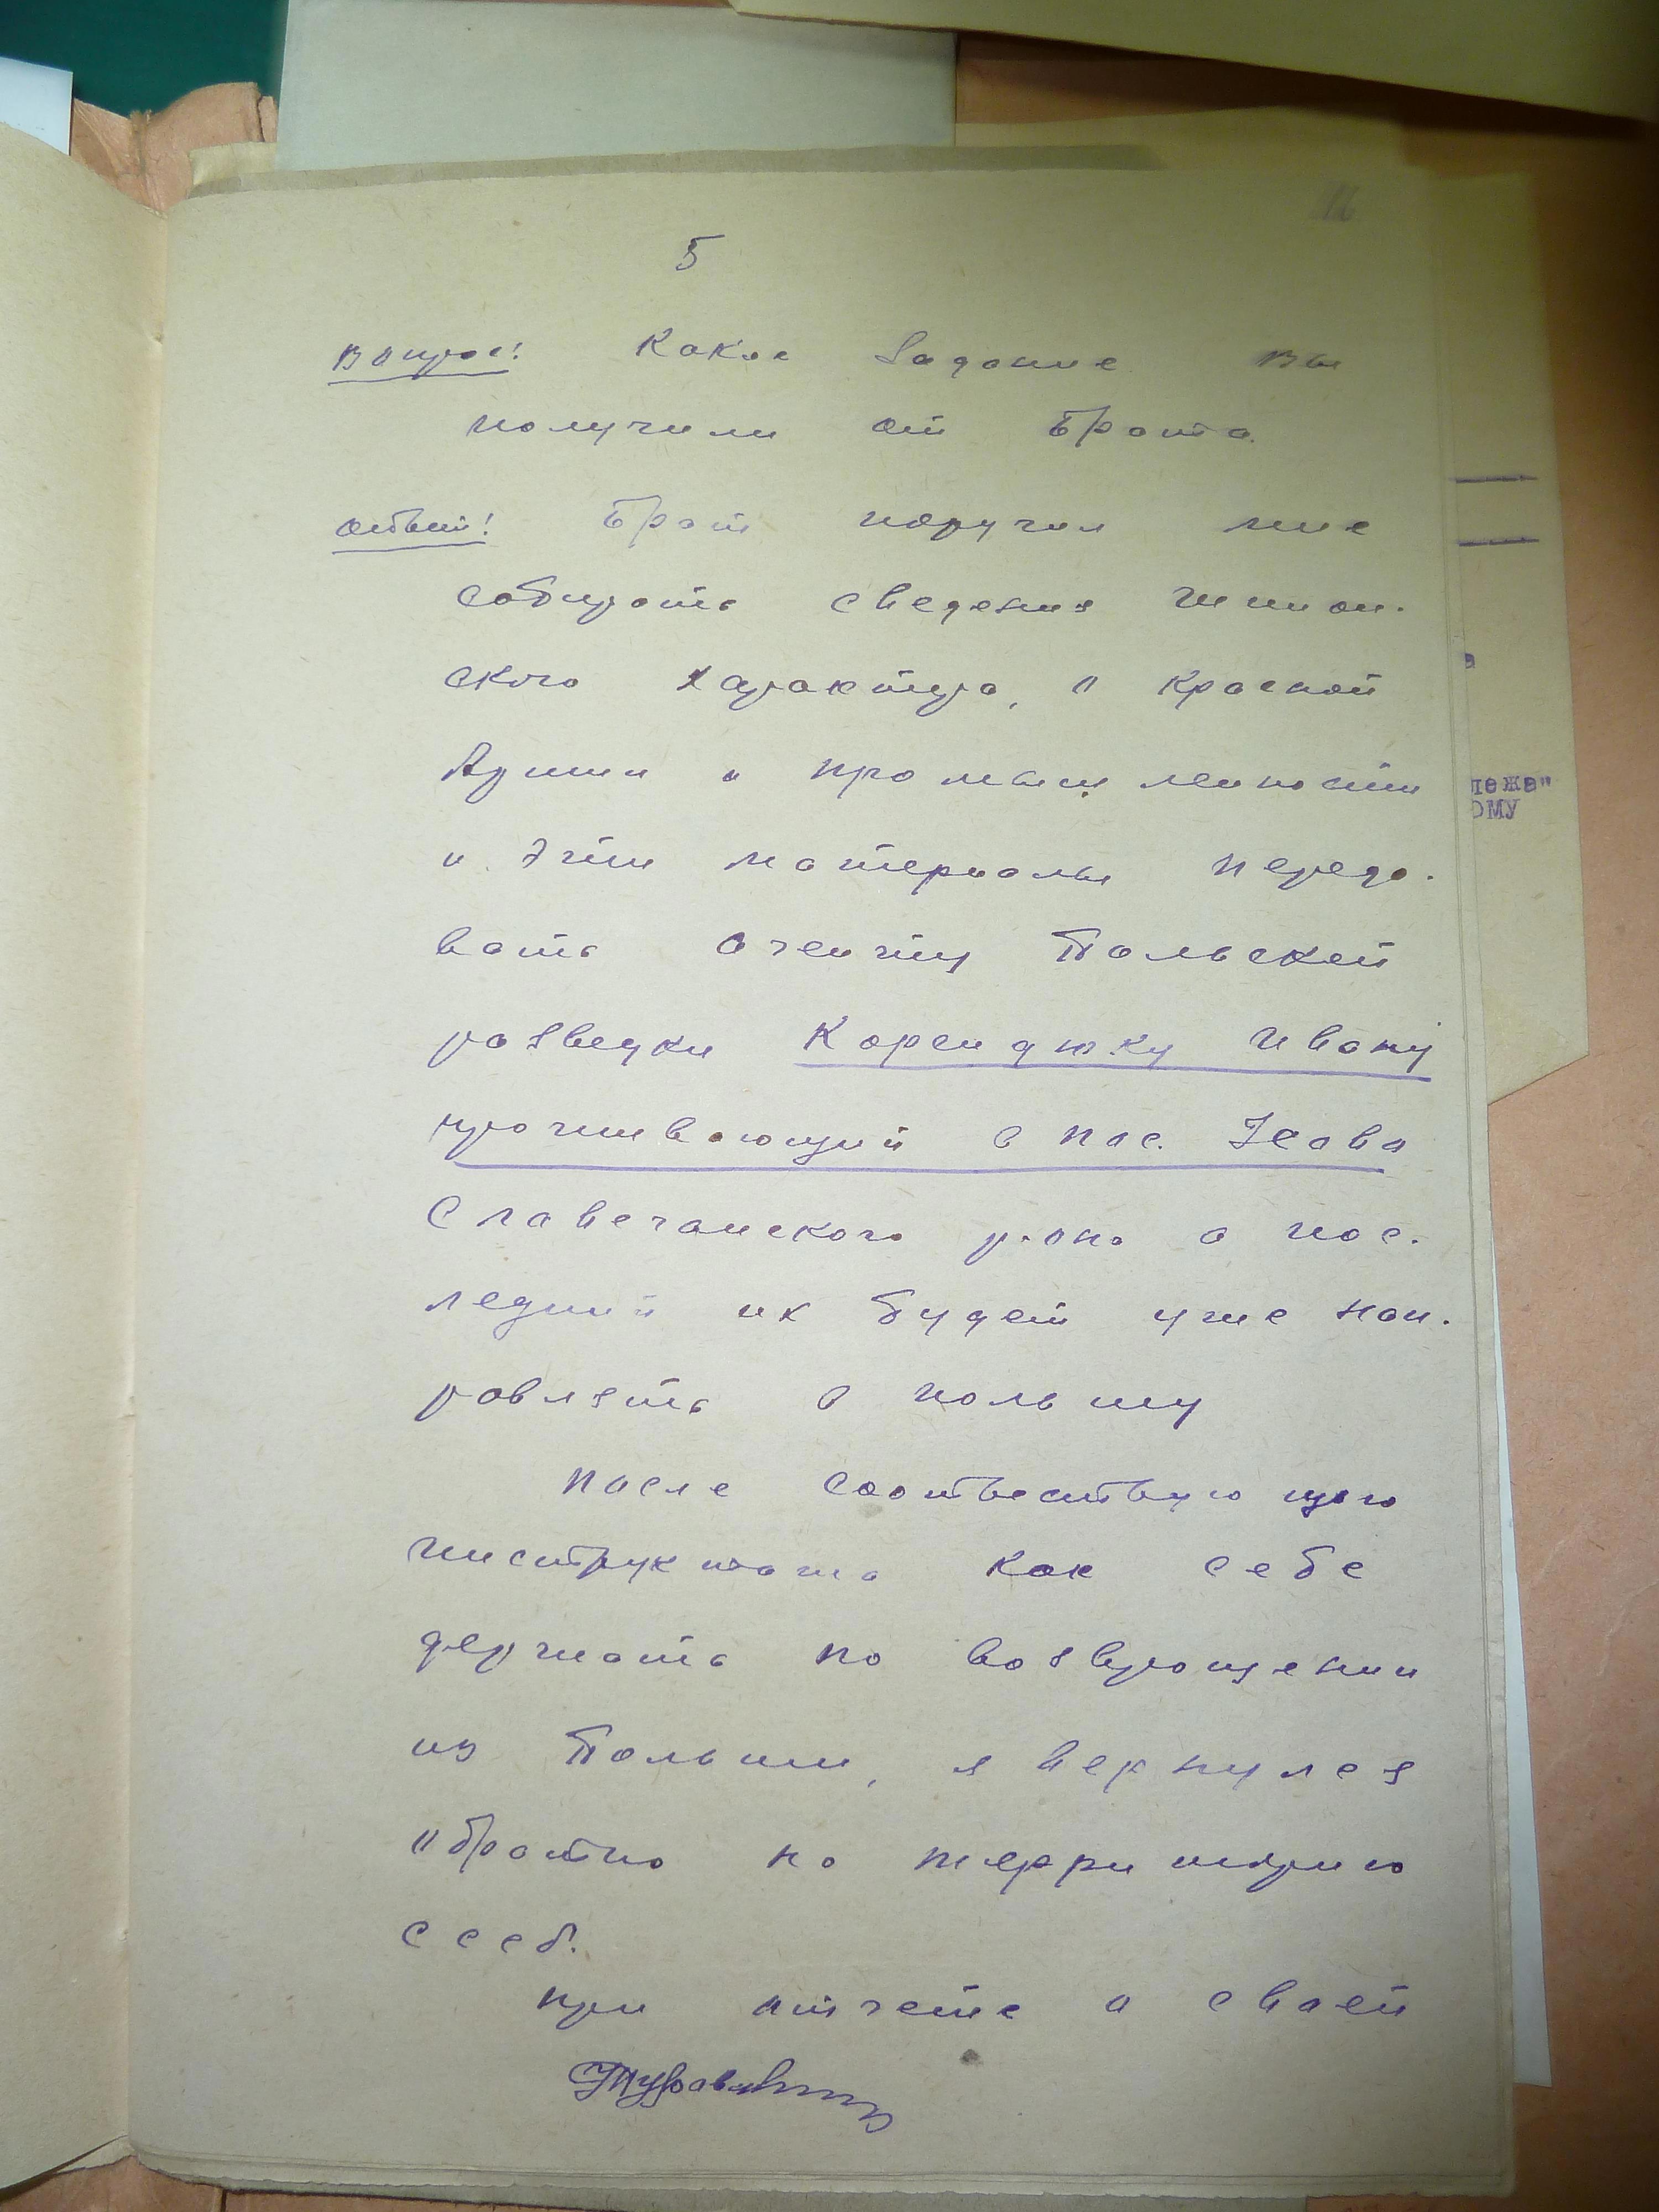 5
Вопрос: Какое задание вы
получили от брата
Ответ: Брат поручил мне
собирать сведения шпион-
ского характера, о красной
Армии и промышленности
и эти материалы переда-
вать агенту Польской
разведки Корендюку Ивану
проживающий в пос. Усово
Словечанского р-она а пос-
ледний их будет уже нап-
равлять в польшу
после соответствующего
инструктажа как себе
держать по возвращении
из Польши, я вернулся
обратно на территорию
СССР.
при отчете о своей
лежа"
ОМУ